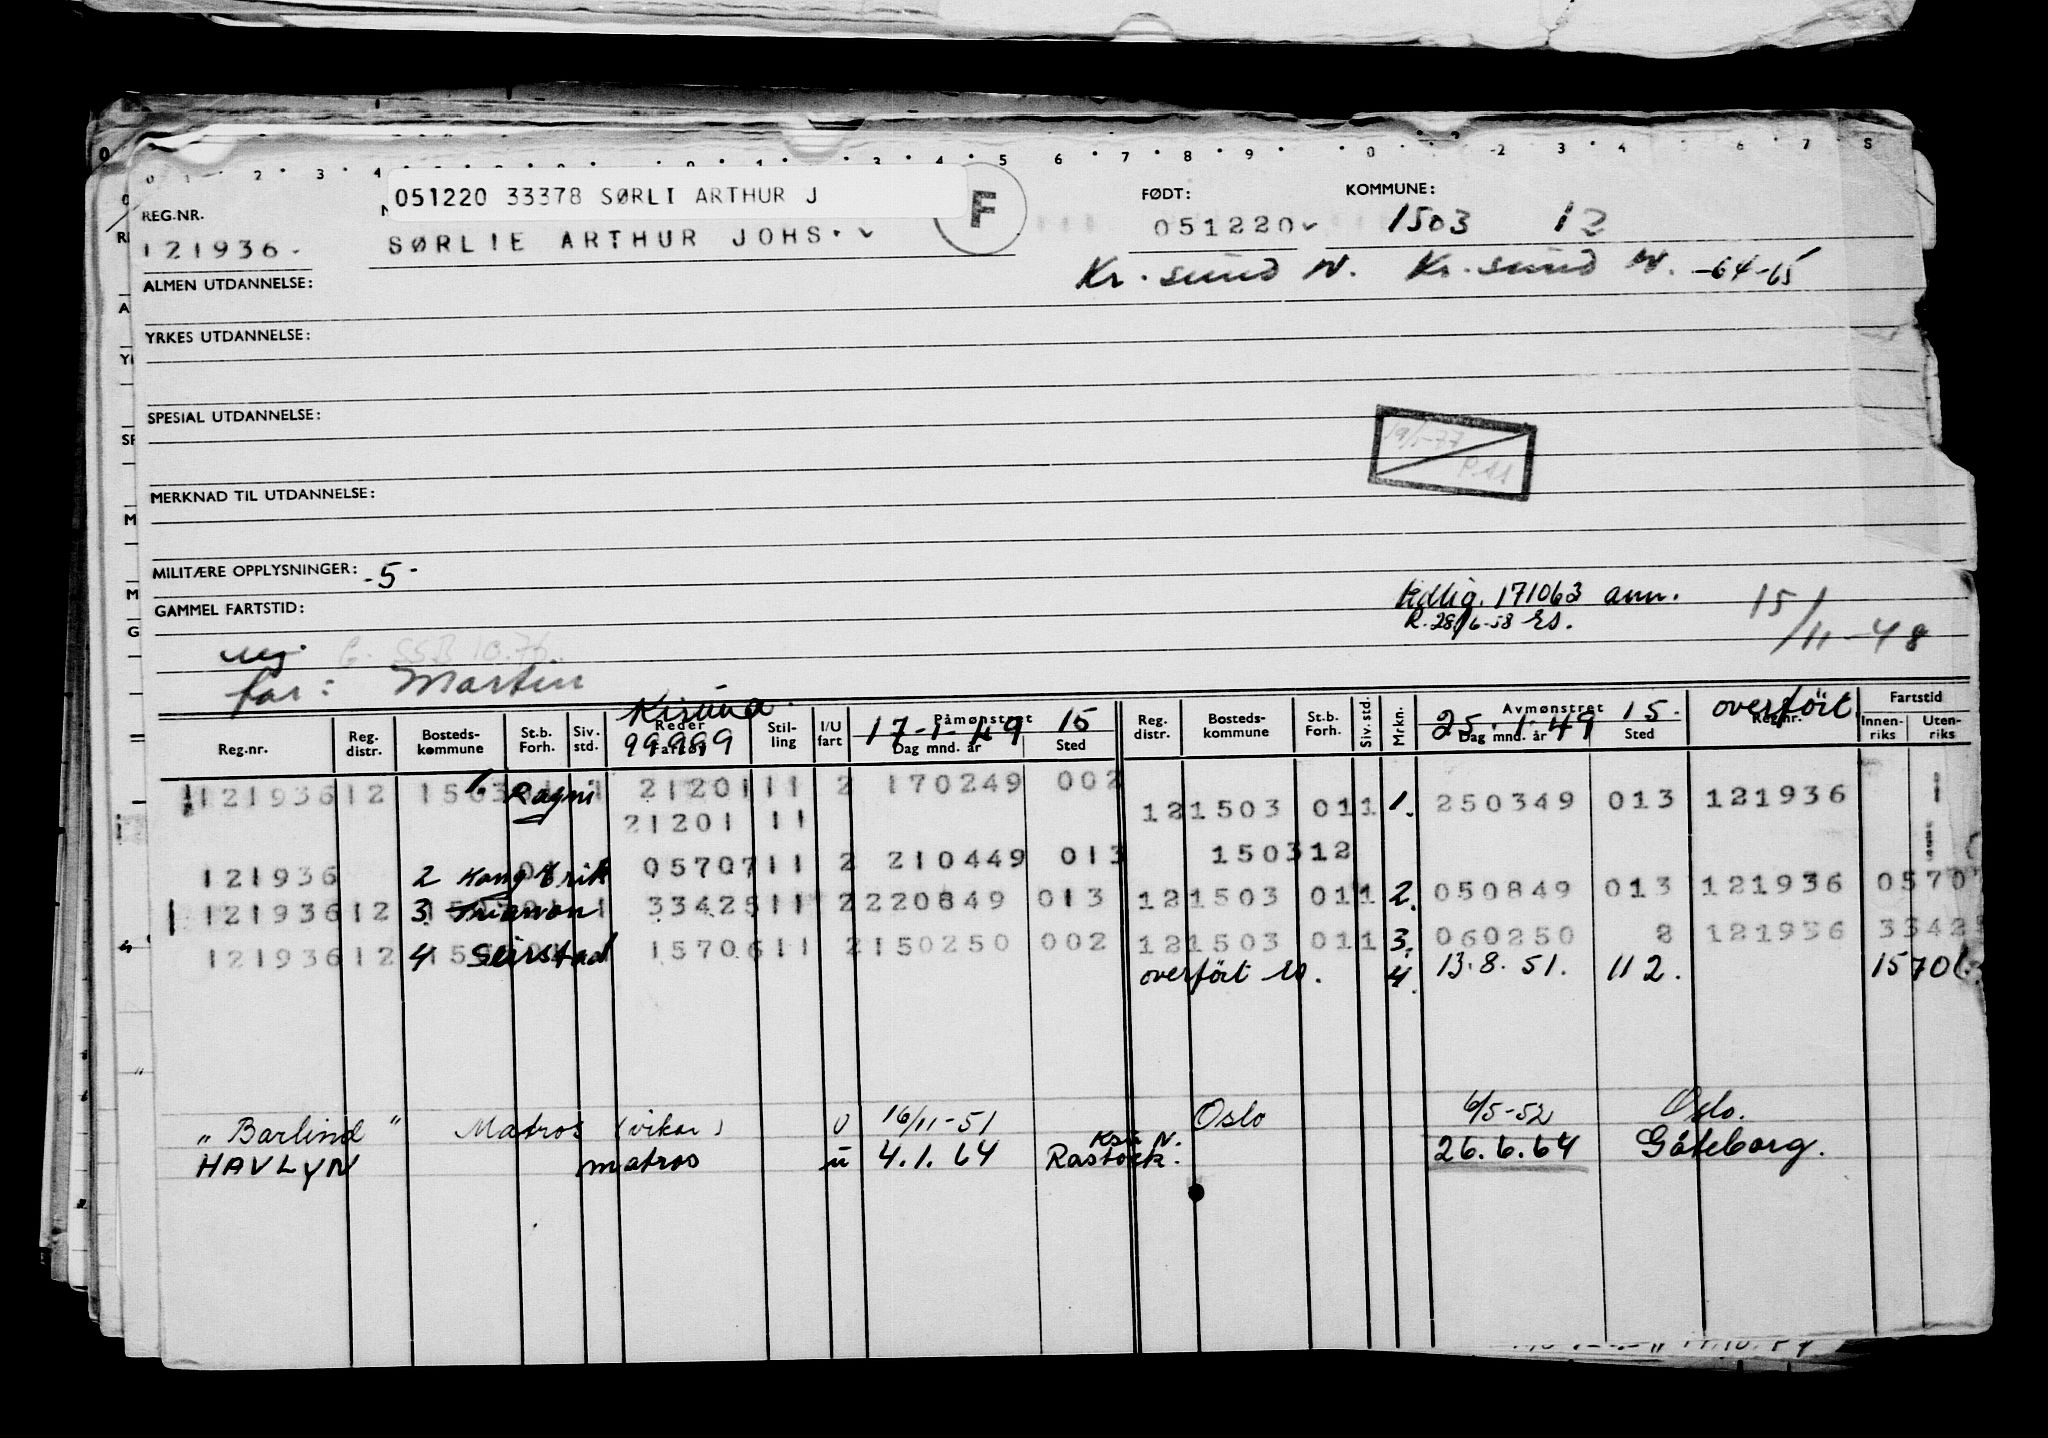 051220 33378 SØRLI ARTHUR J
F
REG.NR.
121936
SØRLIE ARTHUR JOHS.
FØDT:
051220
KOMMUNE:
1503 12
Kr. sund N. Kr. sund N. -64-65
ALMEN UTDANNELSE:
YRKES UTDANNELSE:
SPESIAL UTDANNELSE:
MERKNAD TIL UTDANNELSE:
MILITÆRE OPPLYSNINGER: -5-
GAMMEL FARTSTID:
tidlig. 171063 ann.
R. 28/6-58 Es.
15/11-48
far: Martin
Reg.nr. Reg. distr. Bosteds-kommune St.b. Forh. Siv. std. Reder Stil-ling I/U fart Påmønstret Dag mnd. år Sted Reg. distr. Bosteds-kommune St.b. Forh. Siv. std. Mrkn. Avmønstret Dag mnd. år Sted Reg.nr. Fartstid Innen-riks Uten-riks
99999 17-1-49 15 25.1.49 15. overført
121936 12 1. Ragni 21201 11 2 170249 002 12 1503 01 1 1. 250349 013 121936
21201 11
121936 2 Kong Erik 05707 11 2 210449 013 1503 12
121936 12 3 Trianon 33425 11 2 220849 013 12 1503 01 1 2. 050849 013 121936 0570
121936 12 4 Seirstad 15706 11 2 150250 002 12 1503 01 1 3. 060250 2 121936 3342
overført Es. 4. 13.8.51. 112. 15706
"Barlind" Matros (vikar) U 16/11-51 Oslo 6/5-52 Oslo.
HAVLYN matros u 4.1.64 Rastock. 26.6.64 Göteborg.